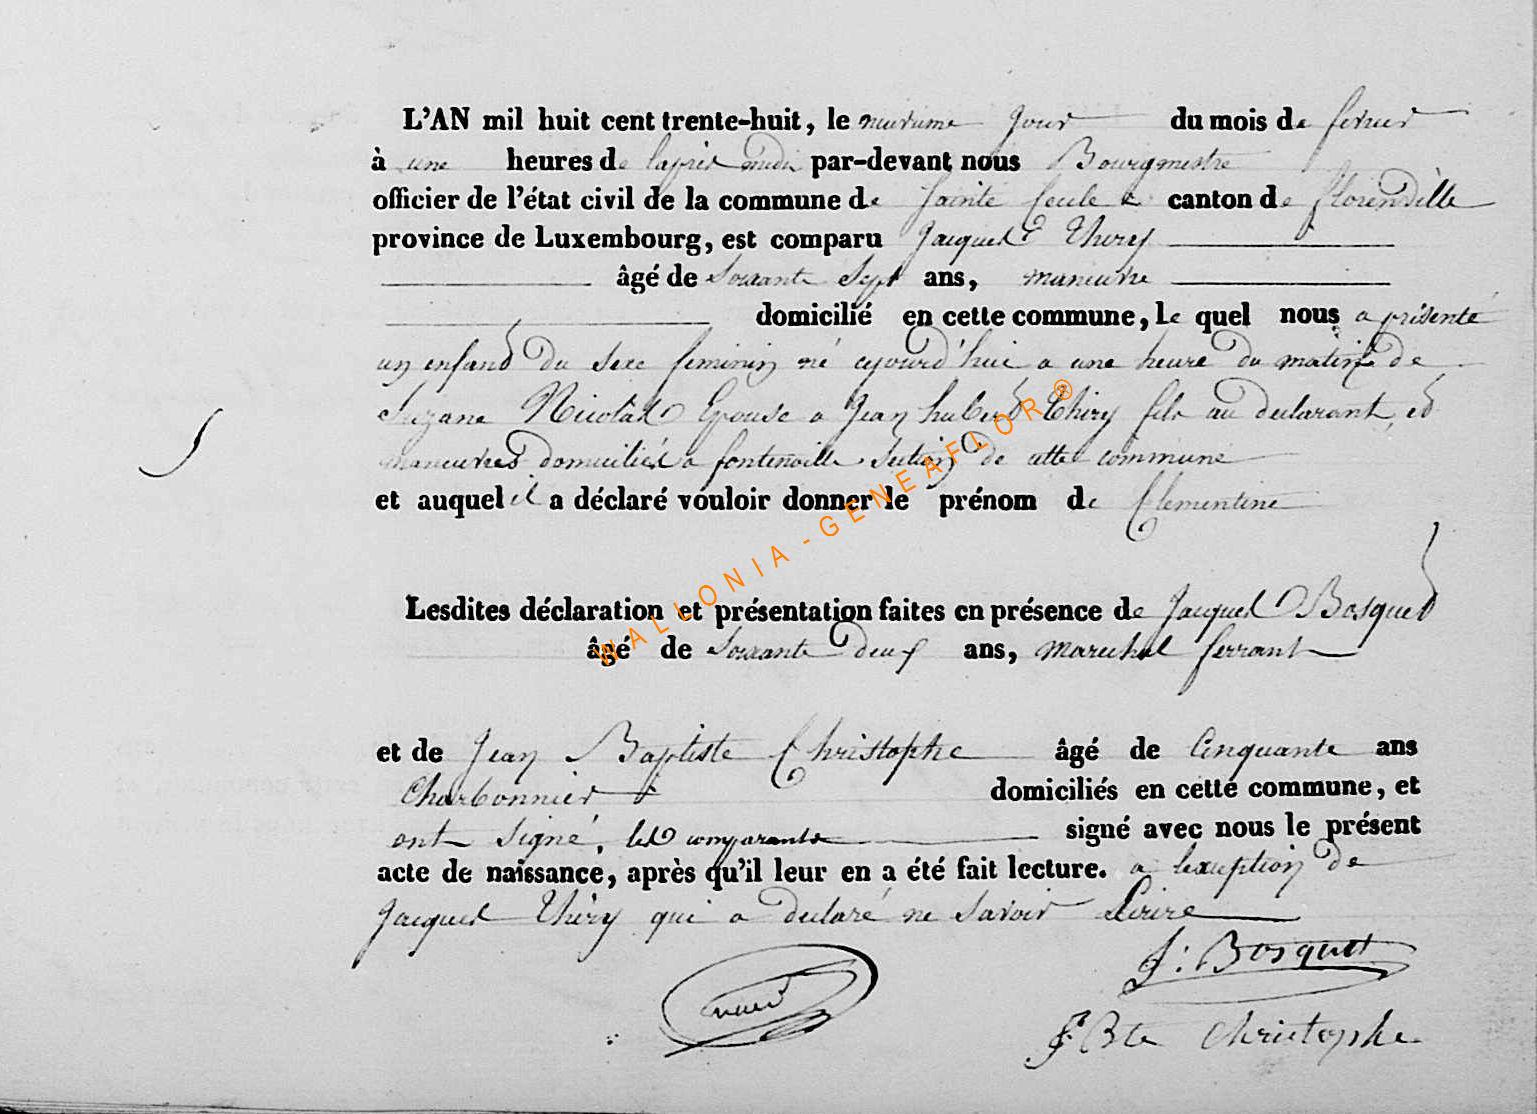 L'AN mil huit cent trente-huit, le neuvieme jour du mois de fevrier
à une heures de lapres midi par-devant nous Bourgmestre
officier de l'état civil de la commune de Sainte Cecile canton de florenville
province de Luxembourg, est comparu Jacques Thiry
âgé de Soixante Sept ans, maneuvre
domicilié en cette commune, Le quel nous a présenté
un enfant du sexe feminin né ajourd'hui a une heure du matin de
Suzane Nicolas Epouse a Jean hubert Thiry fils au declarant, et
maneuvres domiciliés a fontenoille Section de cette commune
et auquel il a déclaré vouloir donner le prénom de Clementine
Lesdites déclaration et présentation faites en présence de Jacques Bosquet
âgé de Soixante deux ans, marechal ferrant
et de Jean Baptiste Christophe âgé de Cinquante ans
Charbonnier domiciliés en cette commune, et
ont signé, les comparants signé avec nous le présent
acte de naissance, après qu'il leur en a été fait lecture. a lexception de
Jacques Thiry qui a declaré ne savoir Ecrire
J: Bosquet
J. Bte Christophe
WALLONIA-GENEAFLOR®